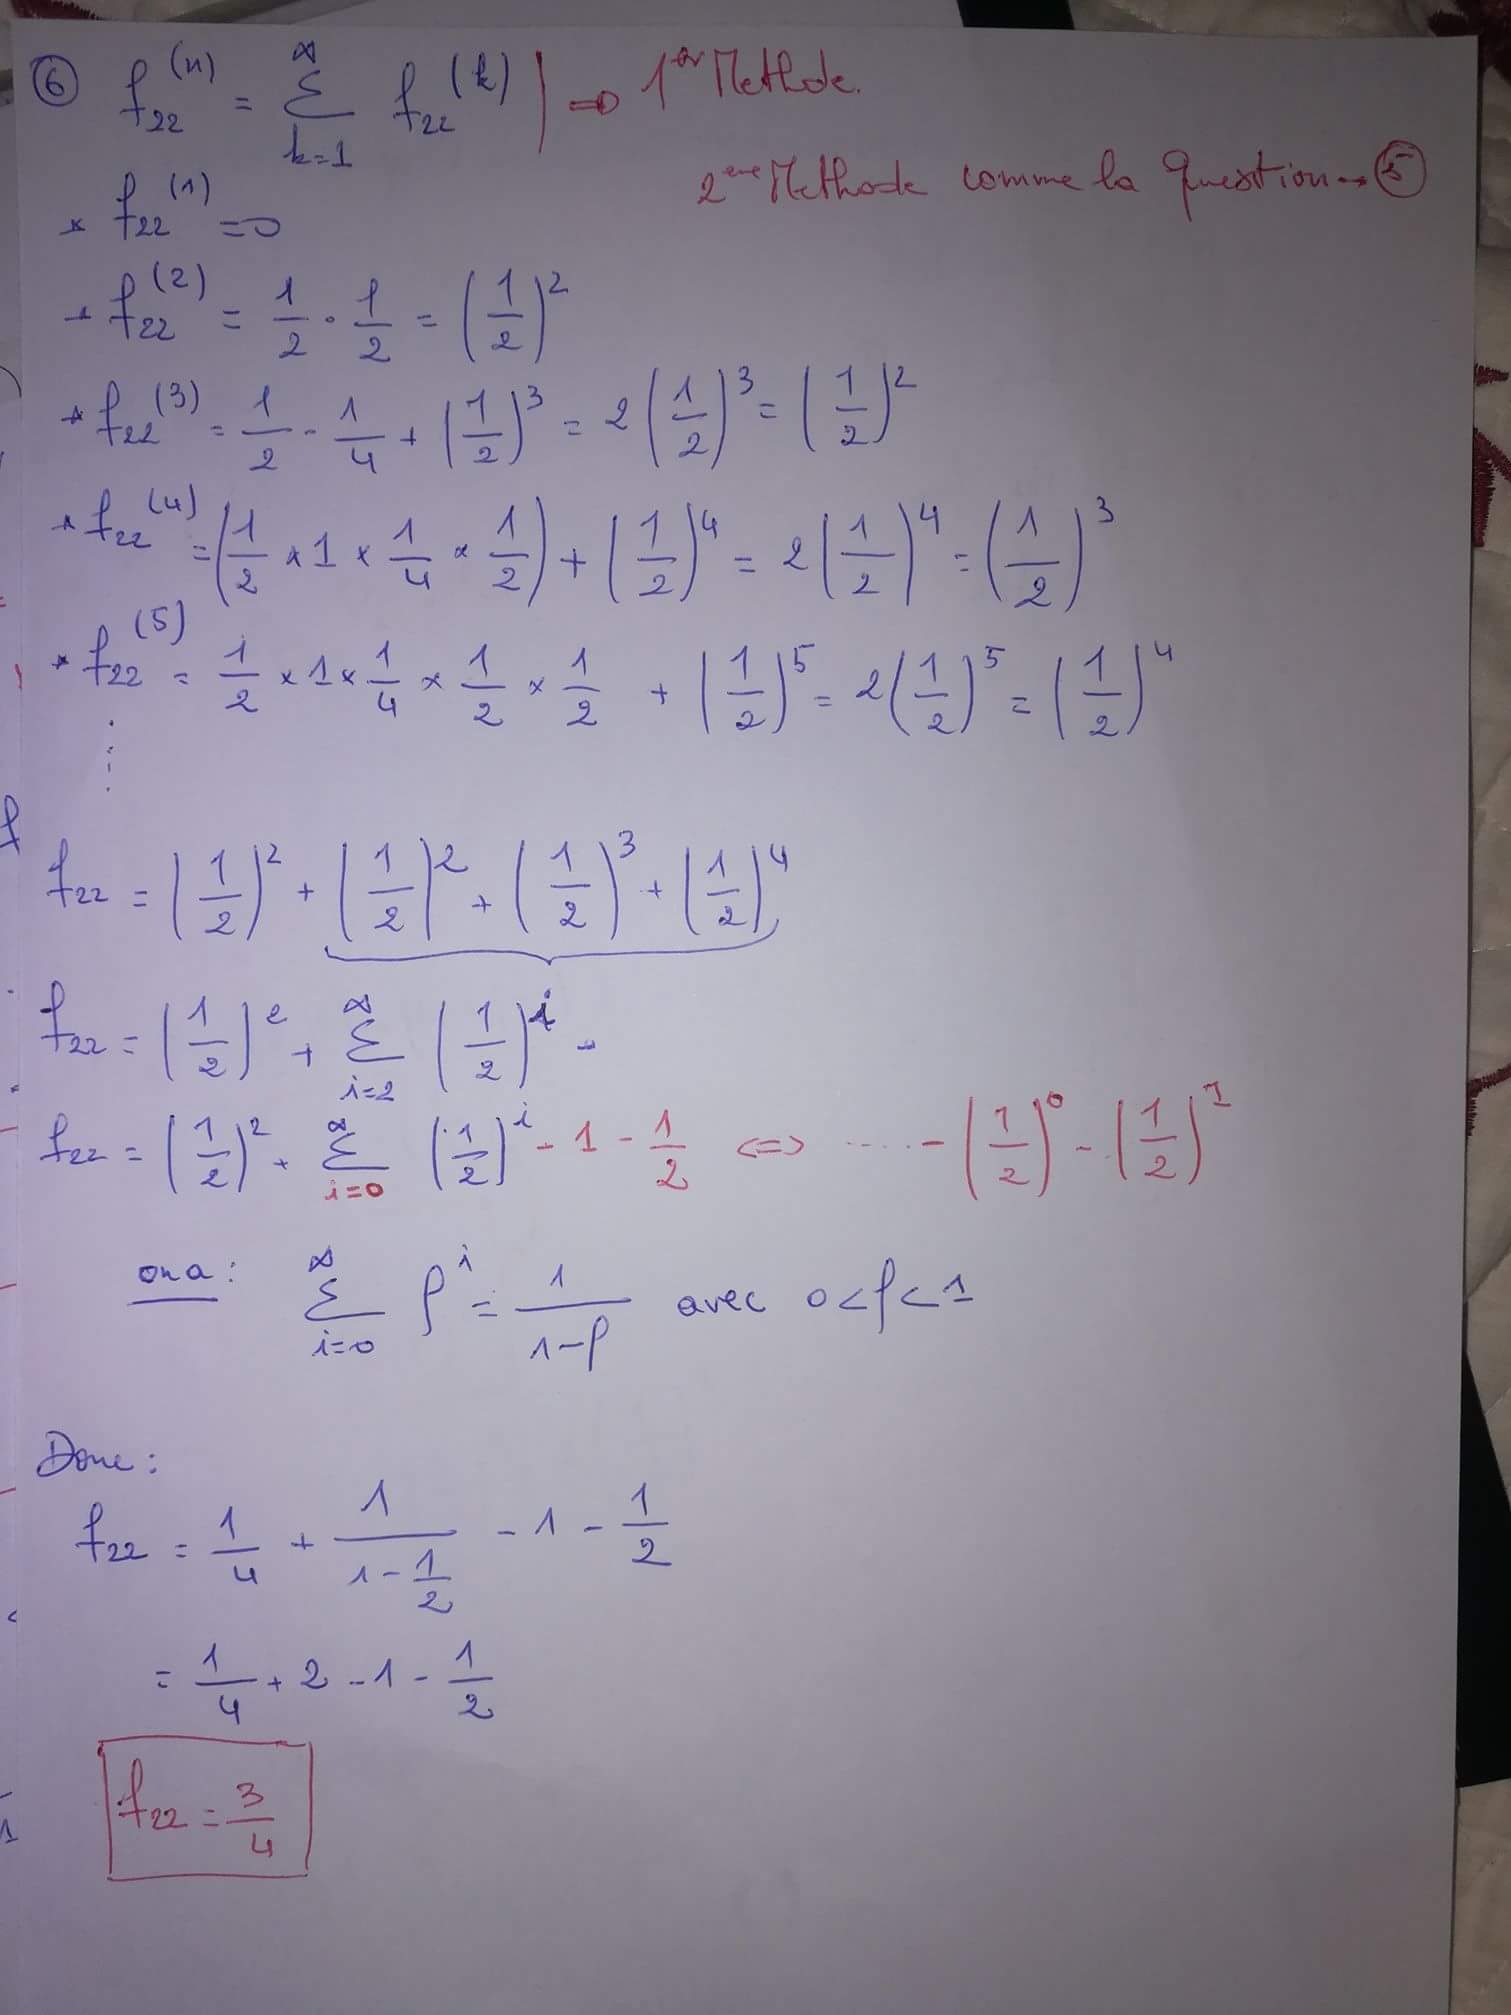 ⑥ f₂₂⁽ⁿ⁾ = ∑_{k=1}^{∞} f₂₂⁽ᵏ⁾ | ⇒ 1er Methode.
2eme Methode comme la Question → ⑤
* f₂₂⁽¹⁾ = 0
* f₂₂⁽²⁾ = 1/2 · 1/2 = (1/2)²
* f₂₂⁽³⁾ = 1/2 · 1/4 + (1/2)³ = 2(1/2)³ = (1/2)²
* f₂₂⁽⁴⁾ = (1/2 × 1 × 1/4 × 1/2) + (1/2)⁴ = 2(1/2)⁴ = (1/2)³
* f₂₂⁽⁵⁾ = 1/2 × 1 × 1/4 × 1/2 × 1/2 + (1/2)⁵ = 2(1/2)⁵ = (1/2)⁴
f₂₂ = (1/2)² + (1/2)² + (1/2)³ + (1/2)⁴
f₂₂ = (1/2)² + ∑_{i=2}^{∞} (1/2)ⁱ -
f₂₂ = (1/2)² + ∑_{i=0}^{∞} (1/2)ⁱ - 1 - 1/2 ⇔ ..... - (1/2)⁰ - (1/2)¹
on a : ∑_{i=0}^{∞} ρⁱ = 1/(1-ρ) avec 0<ρ<1
Donc :
f₂₂ = 1/4 + 1/(1 - 1/2) - 1 - 1/2
= 1/4 + 2 - 1 - 1/2
f₂₂ = 3/4